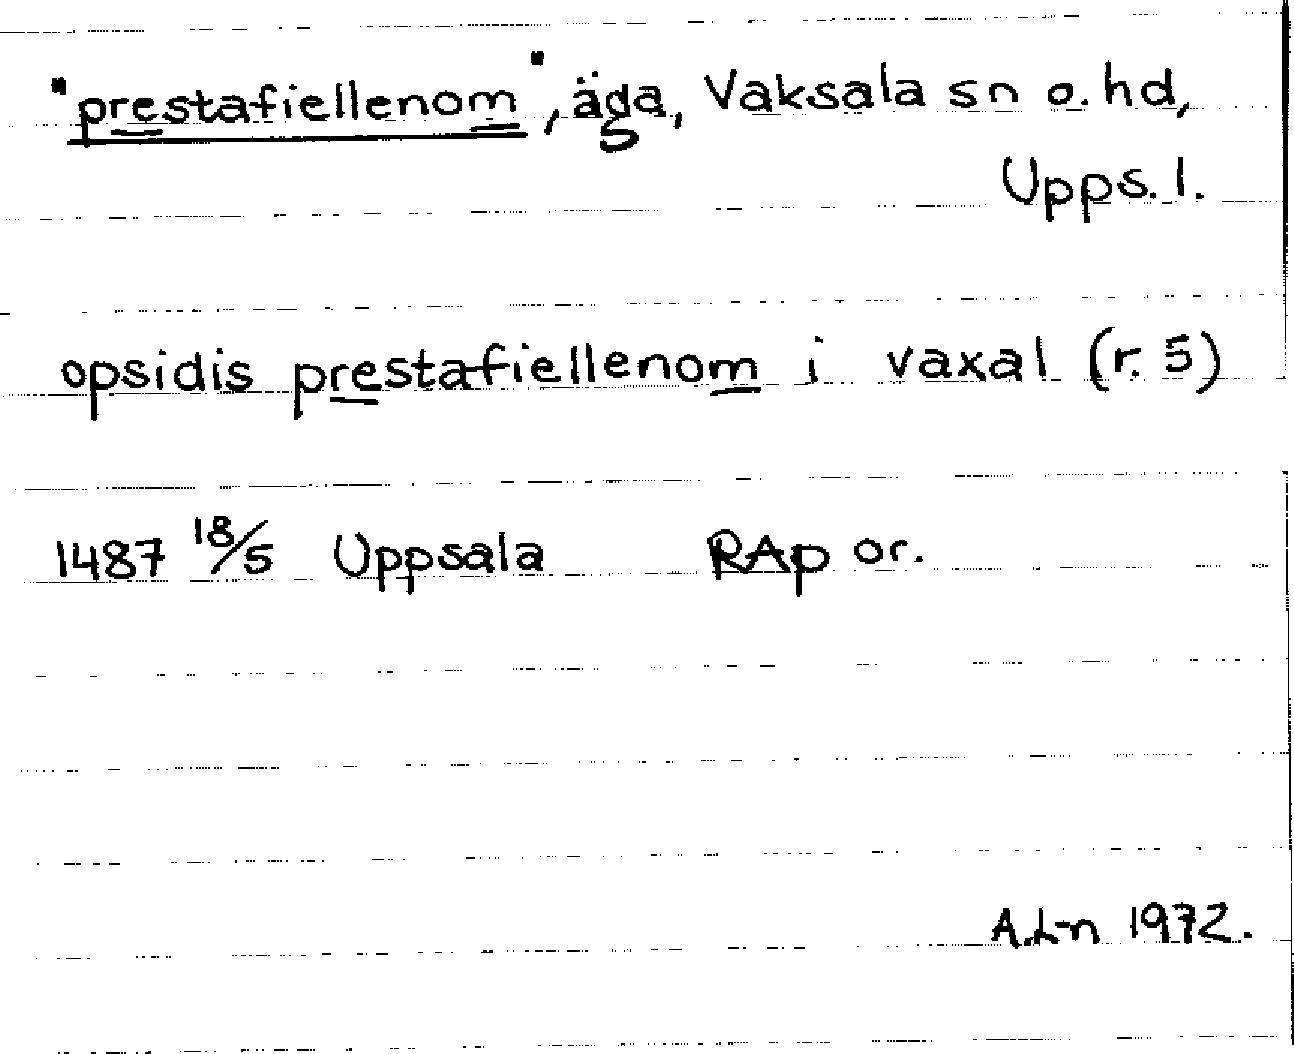 "prestafiellenom", äga, Vaksala sn o. hd,
Upps. l.
opsidis prestafiellenom i vaxal (r. 5)
1487 18/5 Uppsala RAp or.
A.L-n 1972.